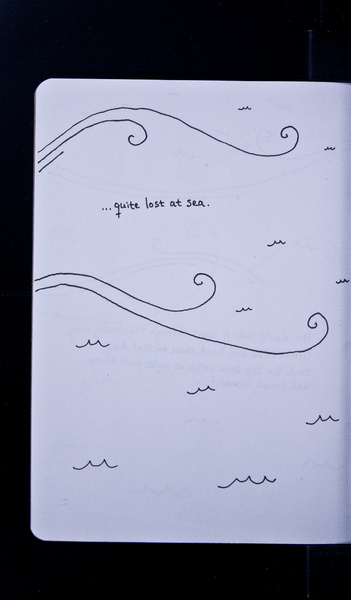 ...quite lost at sea.